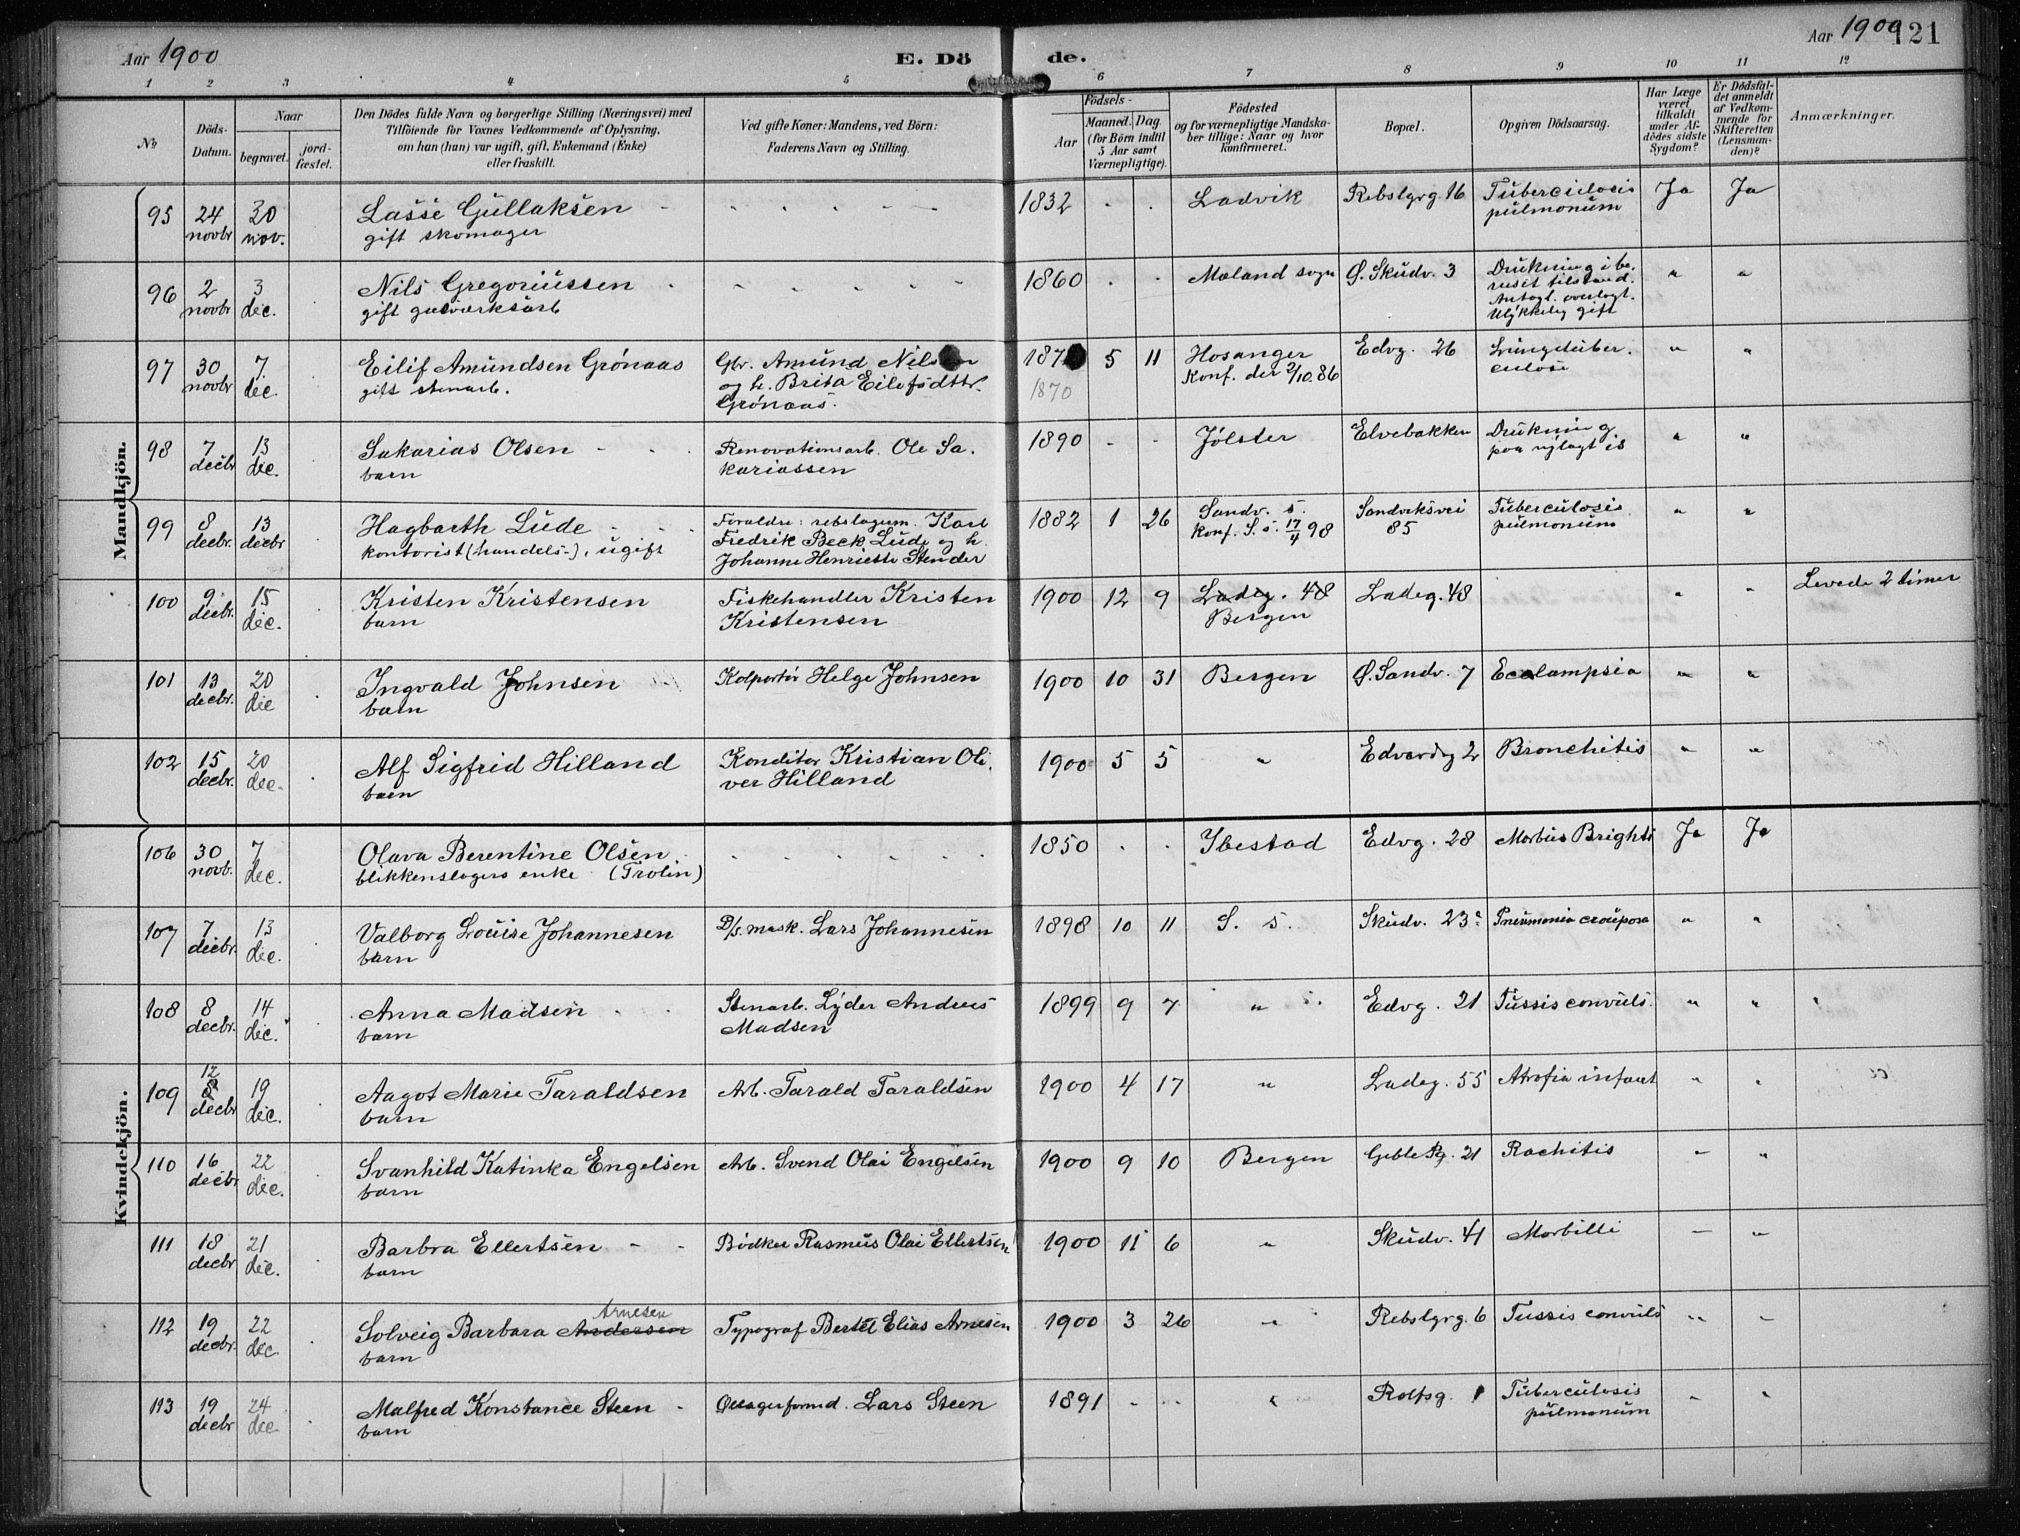 Aar 1900
E. Dö
de.
Aar 1900
121
1 2 3 4 5 6 7 8 9 10 11 12
№
Döds-
Datum.
Naar
begravet.
jord-
fæstet.
Den Dödes fulde Navn og borgerlige Stilling (Næringsvei) med
Tilföiende for Voxnes Vedkommende af Oplysning,
om han (hun) var ugift, gift, Enkemand (Enke)
eller fraskilt.
Ved gifte Koner: Mandens, ved Börn:
Faderens Navn og Stilling.
Födsels-
Aar
Maaned. Dag
(for Börn indtil
5 Aar samt
Værnepligtige).
Födested
og for værnepligtige Mandska-
ber tillige: Naar og hvor
konfirmeret.
Bopæl.
Opgiven Dödsaarsag.
Har Læge
været
tilkaldt
under Af-
dödes sidste
Sygdom?
Er Dödsfal-
det anmeldt
af Vedkom-
mende for
Skifteretten
(Lensman-
den)?
Anmærkninger.
Mandkjön.
95 24 novbr 30 nov. Lasse Gullaksen 1832 Ladvik Rebslgrg. 16 Tuberculosis Ja Ja
gift skomager pulmonum
96 2 novbr 3 dec. Nils Gregoriussen 1860 Maland sogn Ø. Skudv. 3 Drukning i be-
gift gasværksarb ruset tilstand.
Antagl. overlagt.
Ulykkelig gift
97 30 novbr 7 dec. Eilif Amundsen Grónaas Gbr. Amund Nilsen 187 5 11 Hosanger Edvg. 26 Lungetuber-
gift stenarb. og h. Brita Eilifsdttr. 1870 Konf. der 2/10 86 culose
Grónaas.
98 7 decbr 13 dec. Sakarias Olsen Renovationsarb. Ole Sa- 1890 Jólster Elvebakken Drukning
barn kariassen paa nylagt is
99 8 decbr. 13 decbr Hagbarth Lude Foraldre: rebslagerm. Karl 1882 1 26 Sandv. s. Sandviksvei Tuberculosis
kontorist (handels-), ugift Fredrik Beck Lude og h. konf. S. s. 17/4 98 85 pulmonum
Johanne Henriette Stender
100 9 decbr. 15 dec. Kristen Kristensen Fiskehandler Kristen 1900 12 9 Ladeg. 48 Ladeg. 48 Levede 2 timer
barn Kristensen Bergen
101 13 decbr. 20 dec Ingvald Johnsen Kolportór Helge Johnsen 1900 10 31 Bergen Ø. Sandv. 7 Ecalampsia
barn
102 15 decbr. 20 dec. Alf Sigfrid Hilland Konditor Kristian Oli- 1900 5 5 " Edvardsg 2 Bronchitis
barn ver Hilland
Kvindekjön.
106 30 novb. 7 dec. Olava Berentine Olsen. 1850 Ibestad Edvg. 28 Morbus Brighti Ja Ja
blikkenslagers enke (Trolin)
107 7 decbr. 13 dec. Valborg Louise Johannesen D/s. mask. Lars Johannesen 1898 10 11 S. s. Skudv. 23a Pneumonia crouposa
barn
108 8 decbr. 14 dec. Anna Madsen Stenarb. Lyder Andreas 1899 9 7 " Edvg. 21 Tussis convuls.
barn Madsen
109 12 8 decbr 19 dec. Aagot Marie Taraldsen Arb. Tarald Taraldsen 1900 4 17 " Ladeg. 55 Atrofia infant
barn
110 16 decbr 22 dec. Svanhild Katinka Engelsen Arb. Svend Olai Engelsen 1900 9 10 Bergen Geble Pg. 21 Rachitis
barn
111 18 decbr 21 dec. Barbra Ellertsen Bódker Rasmus Olai Ellertsen 1900 11 6 " Skudv. 41 Morbilli
barn
Arnesen
112 19 decbr. 22 dec. Solveig Barbara Andersen Typograf Bertel Elias Arnesen 1900 3 26 " Rebslgrg. 6 Tussis convuls
barn
113 19 decbr 24 dec Malfred Konstance Steen Oplagerformd. Lars Steen 1891 " Rolfsg. 1 Tuberculosis
barn pulmonum